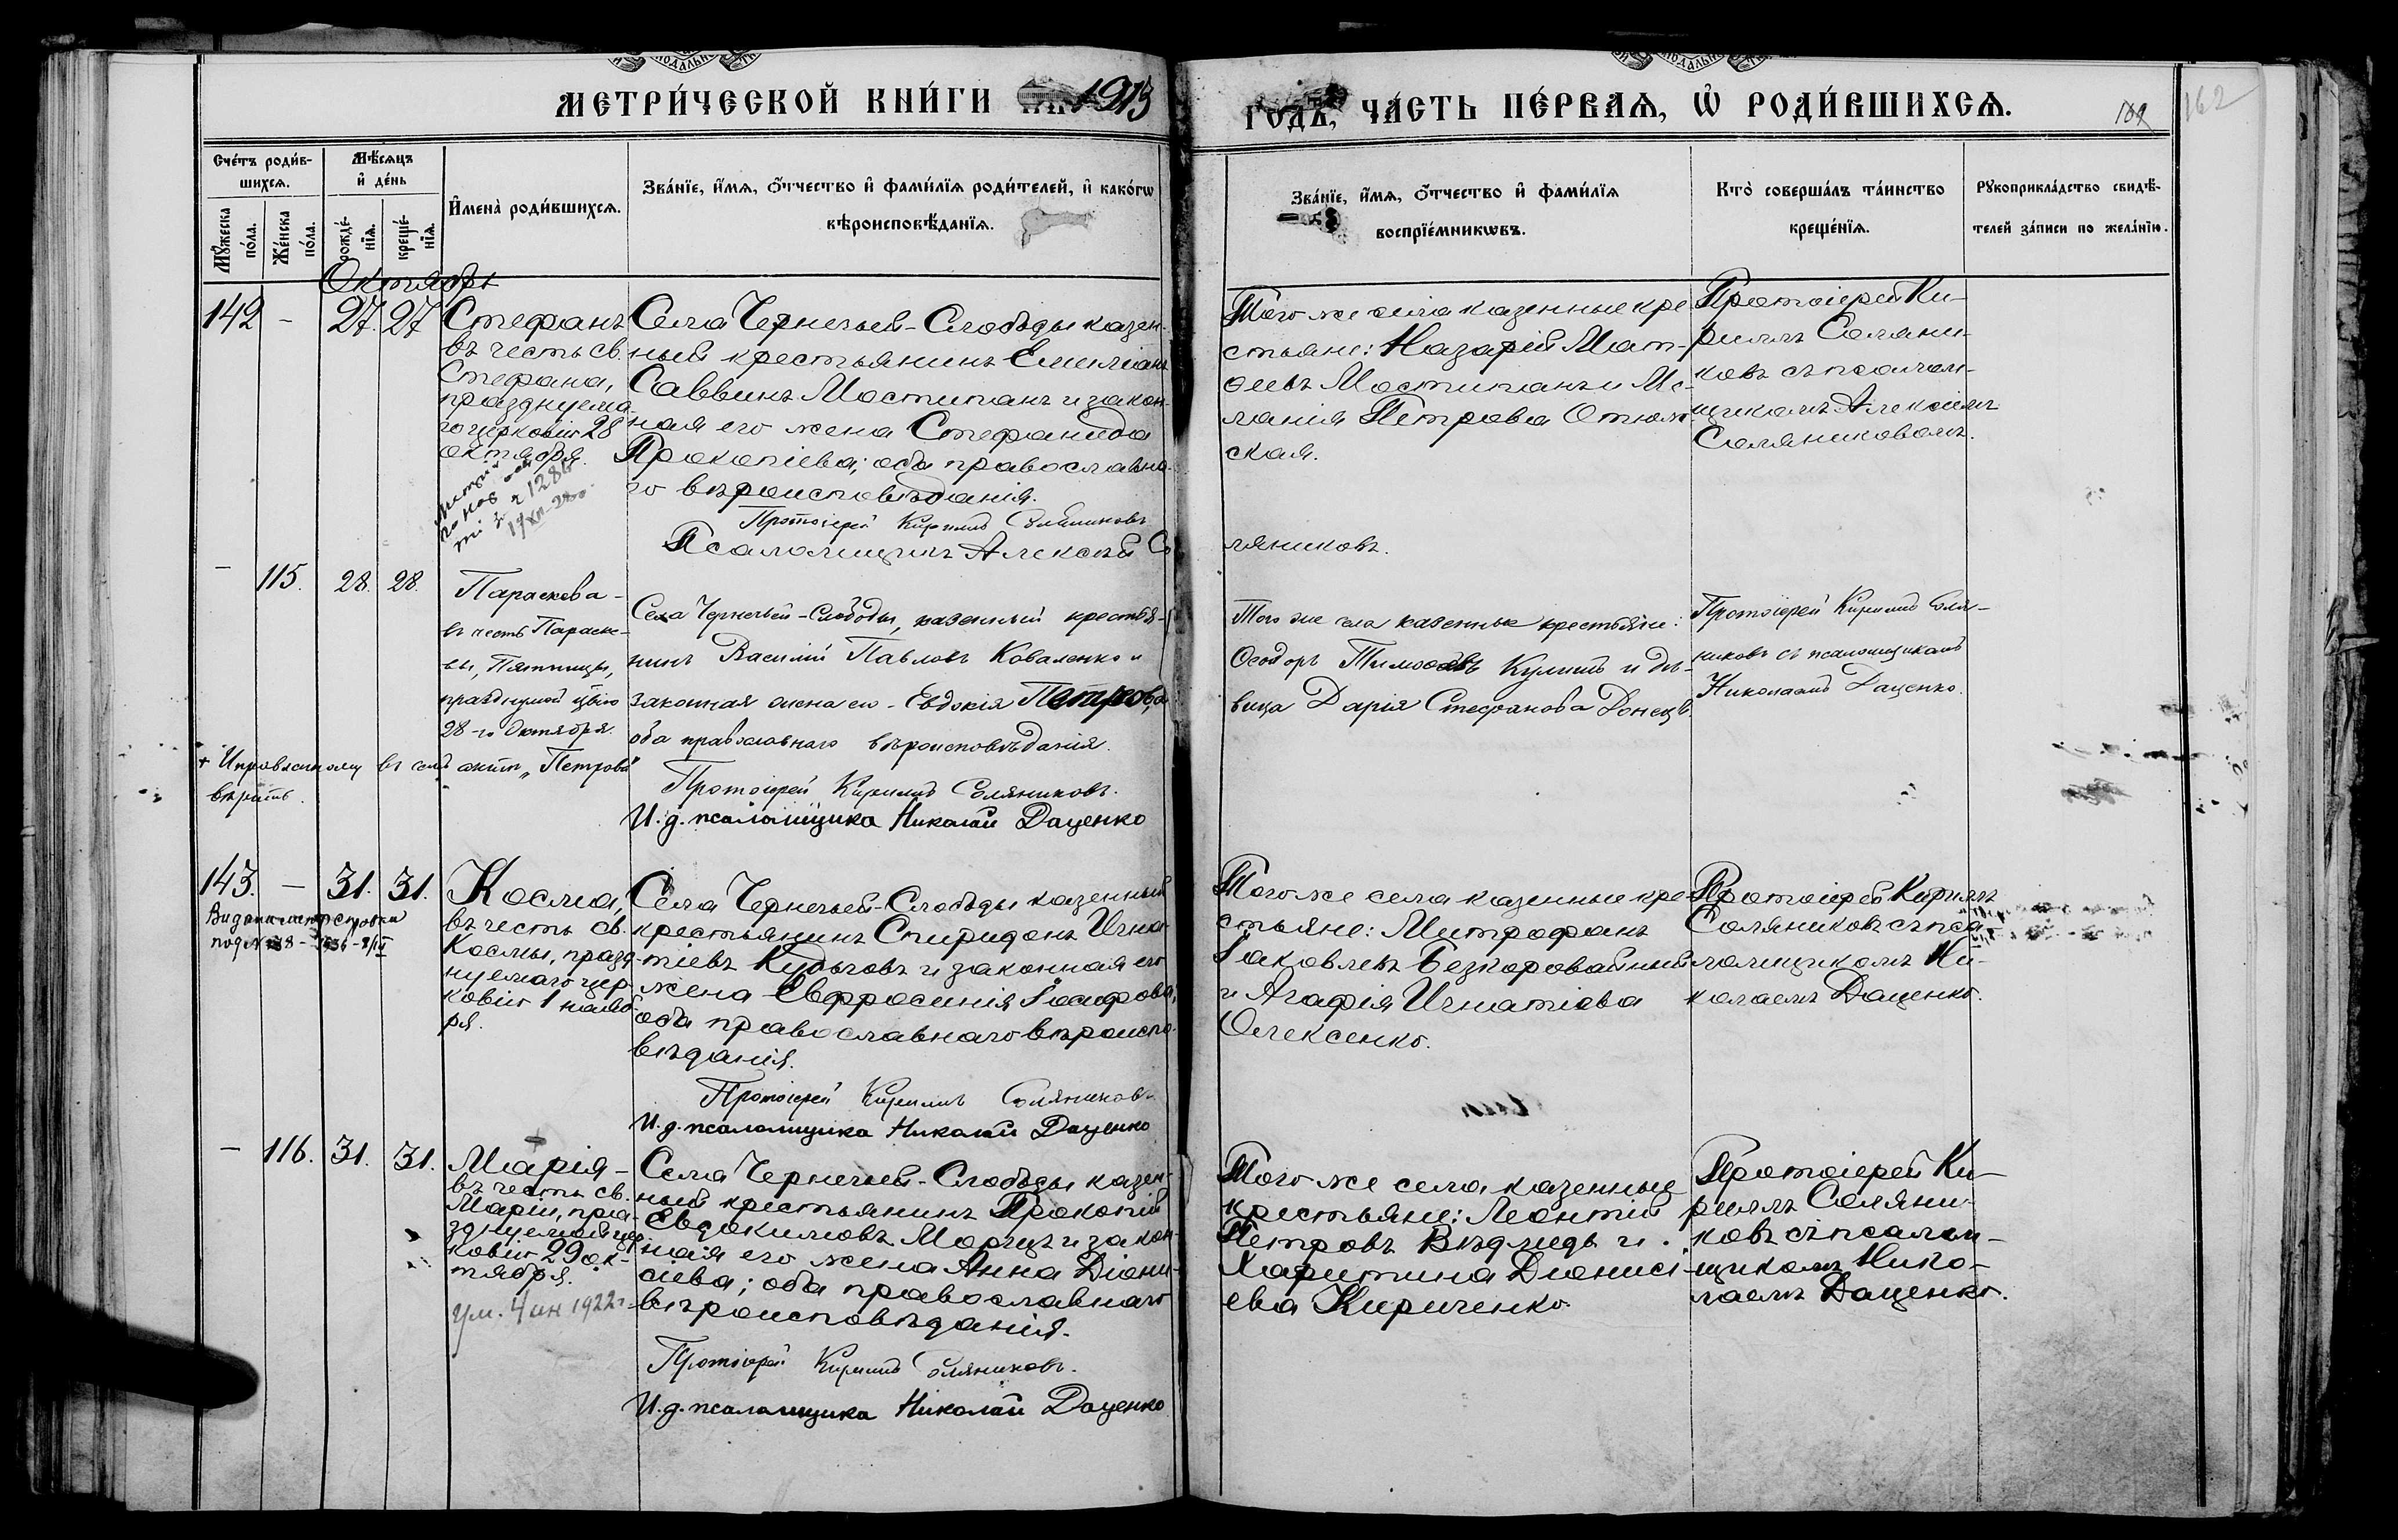 МЕТРИ́ЧЕСКОЙ КНИ́ГИ 1913
ГОДЪ, ЧА́СТЬ ПЕ́РВАЯ, Ѡ РОДИ́ВШИХСЯ.
169
162
Сче́тъ роди́в-
шихся.
Мѣ́сяцъ
и де́нь
Мꙋ́жеска
по́ла.
Же́нска
по́ла.
рожде́-
нїя.
креще́-
нїя.
И҆мена̀ роди́вшихся.
Зва́нїе, и҆́мя, ѻ҆́тчество и҆ фами́лїя роди́телей, и҆ како́гѡ
вѣроисповѣ́данїя.
Зва́нїе, и҆́мя, ѻ҆́тчество и҆ фами́лїя
воспрїе́мникѡвъ.
Кто̀ соверша́лъ та́инство
креще́нїя.
Рꙋкоприкла́дство свидѣ́-
телей за́писи по жела́нїю.
Октябрь
142 - 27. 27
Стефанъ
въ честь св.
Стефана,
празднуема-
го церковію 28
октября.
Села Чернечьей-Слободы казен-
ный крестьянинъ Емиліанъ
Саввинъ Мостипанъ и закон-
ная его жена Стефанида
Прокопіева; оба православна-
го вѣроисповѣданія.
Протоіерей Кириллъ Соляниковъ
Псаломщикъ Алексѣй Со
ляниковъ.
Того же села казенные кре-
стьяне: Назарій Мат-
ѳеевъ Мостипанъ и Ме-
ланія Петрова Отюж-
ская.
Протоіерей Ки-
риллъ Соляни-
ковъ съ псалом-
щикомъ Алексіемъ
Соляниковомъ.
- 115. 28. 28.
Параскева -
въ честь Параске-
вы, Пятницы,
празднуемой цѣвію
28-го Октября.
Села Чернечьей-Слободы, казенный крестья-
нинъ Василій Павловъ Коваленко и
законная жена его - Евдокія Петрова,
оба православнаго вѣроисповѣданія.
+ Исправленному въ семъ актѣ „Петрова"
вѣрить.
Протоіерей Кириллъ Соляниковъ.
И. д. псаломщика Николай Даценко
Того же села казенные крестьяне:
Ѳеодоръ Тимоѳеевъ Кулишъ и дѣ-
вица Дарія Стефанова Донецъ.
Протоіерей Кириллъ Соля-
никовъ съ псаломщикомъ
Николаемъ Даценко.
143. - 31. 31.
Косма,
въ честь св.
Космы, празд-
нуемаго цер-
ковію 1 нояб-
ря.
Села Чернечьей-Слободы казенный
крестьянинъ Спиридонъ Игна-
тіевъ Кудьговъ и законная его
жена Евфросинія Іосифова;
оба православнаго вѣроиспо-
вѣданія.
Протоіерей Кириллъ Соляниковъ.
И. д. псаломщика Николай Даценко
Того же села казенные кре-
стьяне: Митрофанъ
Іаковлевъ Безкоровайный
и Агафія Игнатіева
Олексенко.
Протоіерей Кириллъ
Соляниковъ съ пса-
ломщикомъ Ни-
колаемъ Даценко.
- 116. 31. 31.
Марія -
въ честь св.
Маріи, пра-
зднуемой цер-
ковію 29 ок-
тября.
ум. 4 ин 1922 г
Села Чернечьей-Слободы казен-
ный крестьянинъ Прокопій
Евдокимовъ Моргуъ и закон-
ная его жена Анна Діони-
сіева; оба православнаго
вѣроисповѣданія.
Протоіерей Кириллъ Соляниковъ.
И. д. псаломщика Николай Даценко
Того же села казенные
крестьяне: Леонтій
Петровъ Вѣдмедь и
Харитина Діонисі-
ева Кириченко.
Протоіерей Ки-
риллъ Соляни-
ковъ съ псалом-
щикомъ Нико-
лаемъ Даценко.